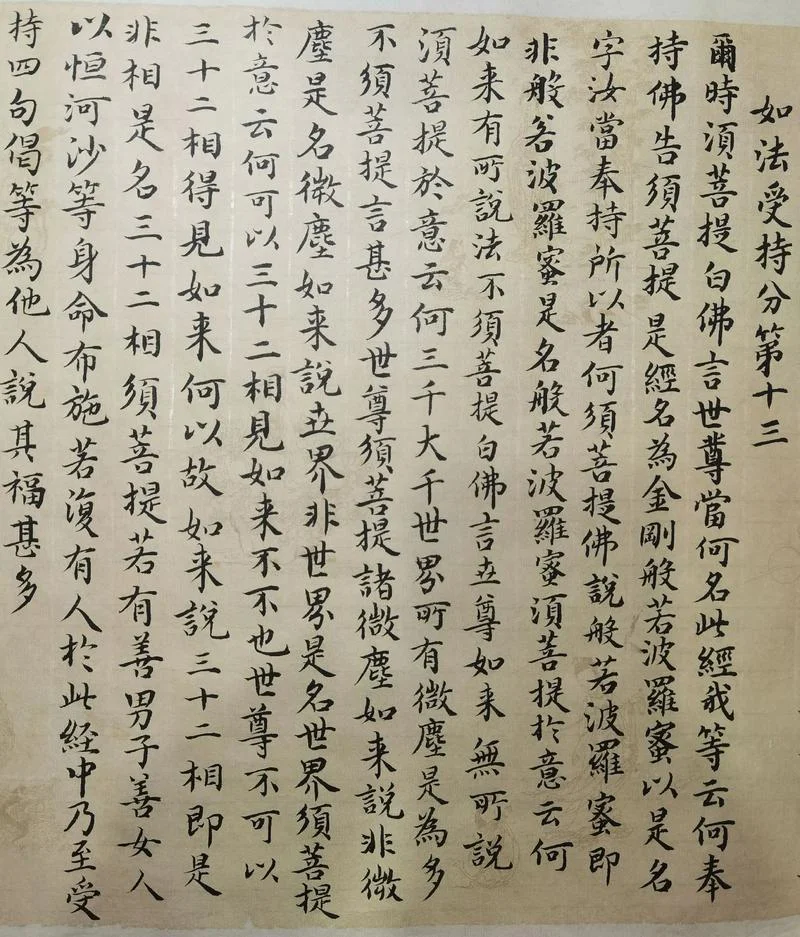 如法受持分第十三
爾時須菩提白佛言世尊當何名此經我等云何奉
持佛告須菩提是經名為金剛般若波羅蜜以是名
字汝當奉持所以者何須菩提佛說般若波羅蜜即
非般若波羅蜜是名般若波羅蜜須菩提於意云何
如来有所說法不須菩提白佛言世尊如来無所說
須菩提於意云何三千大千世界所有微塵是為多
不須菩提言甚多世尊須菩提諸微塵如来說非微
塵是名微塵如来說世界非世界是名世界須菩提
於意云何可以三十二相見如来不不也世尊不可以
三十二相得見如来何以故如来說三十二相即是
非相是名三十二相須菩提若有善男子善女人
以恒河沙等身命布施若復有人於此経中乃至受
持四句偈等為他人說其福甚多